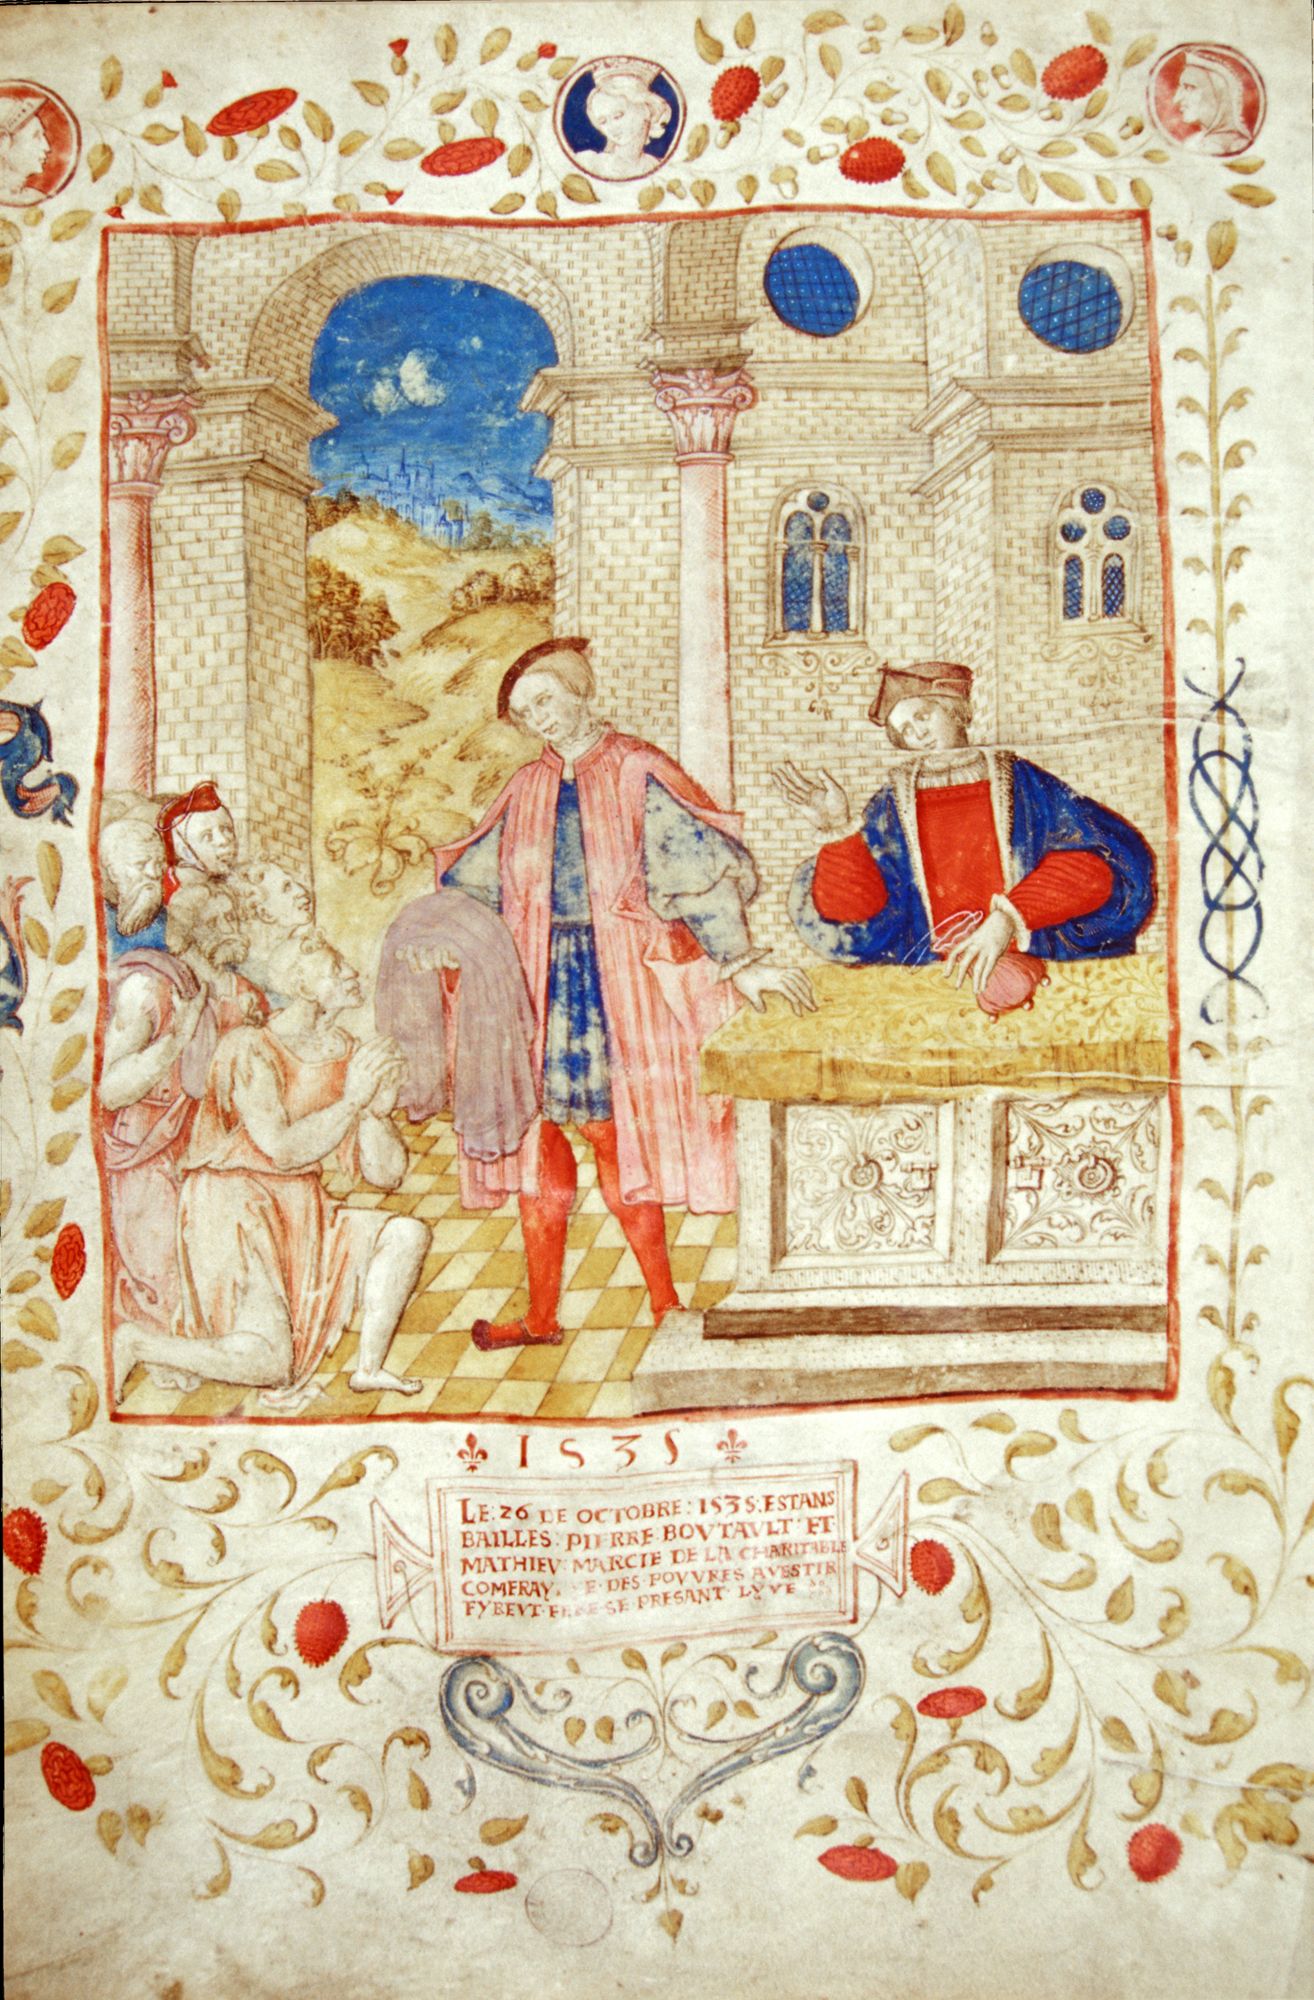 1535
LE: 26 DE OCTOBRE: 1535: ESTANS
BAILLES: PIERRE BOVTAVLT ET
MATHIEV MARCIE DE LA CHARITABLE
COMFRAY. E DES POVVRES AVESTIR
FYREVT FERE SE PRESANT LYVE